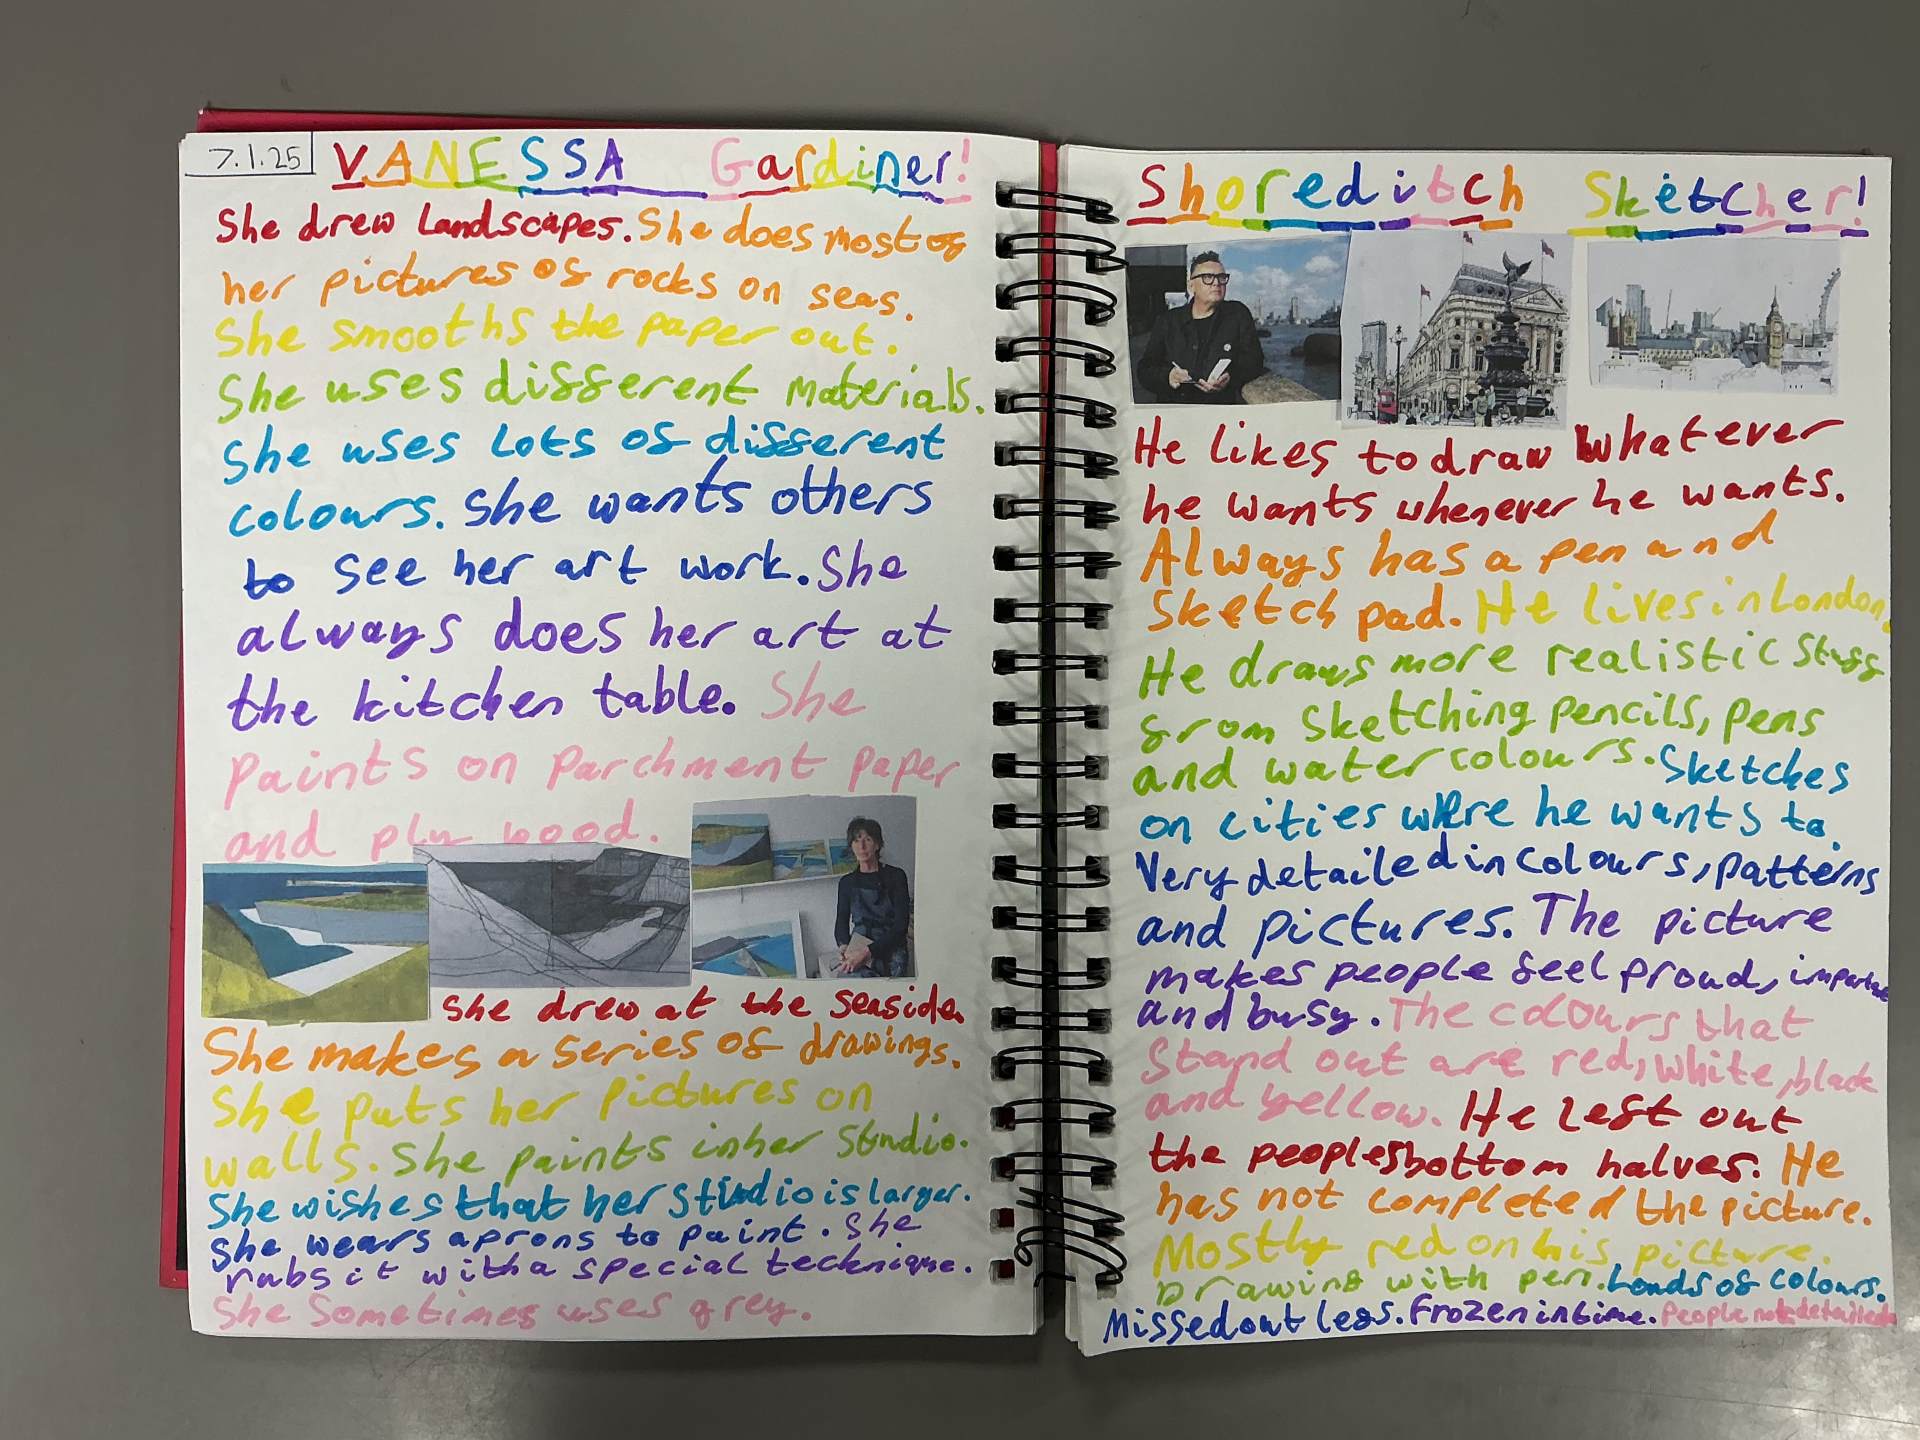 7.1.25
VANESSA Gardiner!
She drew landscapes. She does most of
her pictures of rocks on seas.
She smooths the paper out.
She uses different materials.
She uses lots of different
colours. She wants others
to see her art work. She
always does her art at
the kitchen table. She
paints on parchment paper
and ply wood.
She drew at the seaside.
She makes a series of drawings.
She puts her pictures on
walls. She paints in her studio.
She wishes that her studio is larger.
She wears aprons to paint. She
rubs it with a special technique.
She sometimes uses grey.
Shoreditch Sketcher!
He likes to draw whatever
he wants whenever he wants.
Always has a pen and
sketch pad. He lives in London.
He draws more realistic stuff
from sketching pencils, pens
and water colours. Sketches
on cities where he wants to.
Very detailed in colours, patterns
and pictures. The picture
makes people feel proud, important
and busy. The colours that
stand out are red, white, black
and yellow. He left out
the peoples bottom halves. He
has not completed the picture.
Mostly red on his picture.
Drawing with pen. Loads of colours.
Missed out legs. Frozen in time. People not detailed